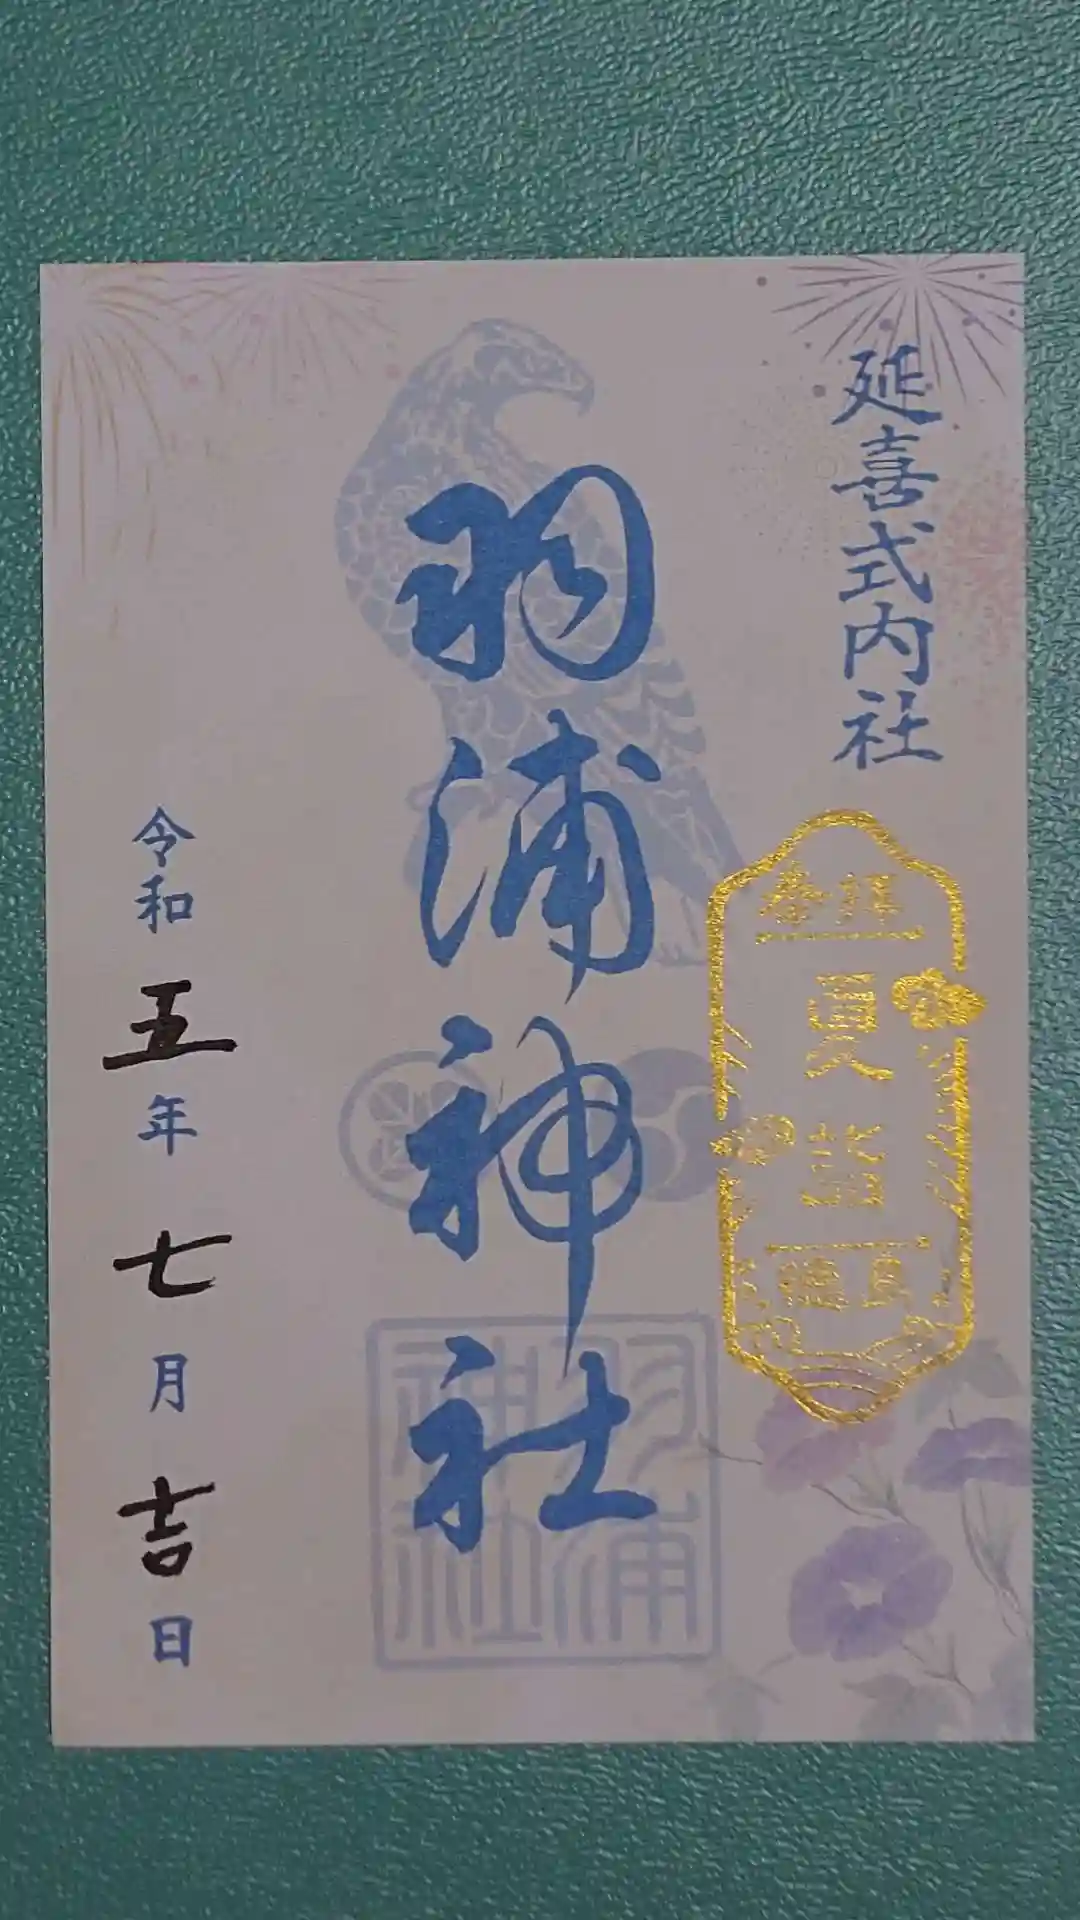 延喜式内社
奉拝
夏詣
羽浦神社
羽浦
神社
令和五年七月吉日